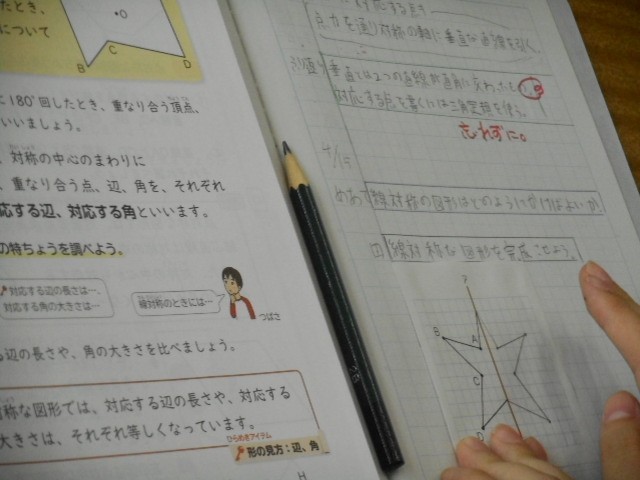 たとき、
について
O
B
C
D
に180°回したとき、重なり合う頂点、
いいましょう。
、対称の中心のまわりに
、重なり合う点、辺、角を、それぞれ
応する辺、対応する角といいます。
の特ちょうを調べよう。
対応する辺の長さは…、
対応する角の大きさは…
線対称のときには…
つばさ
る辺の長さや、角の大きさを比べましょう。
称な図形では、対応する辺の長さや、対応する
大きさは、それぞれ等しくなっています。
ひらめきアイテム
形の見方：辺、角
H
対応する点
点カを通り対称の軸に垂直な直線を引く。
垂直とは2つの直線が直角に交わったもの
対応する点を書くには三角定規を使う。
忘れずに。
めあて 線対称の図形はどのようにかけばよいか。
線対称な図形を完成させよう。
ア
B
A
C
D